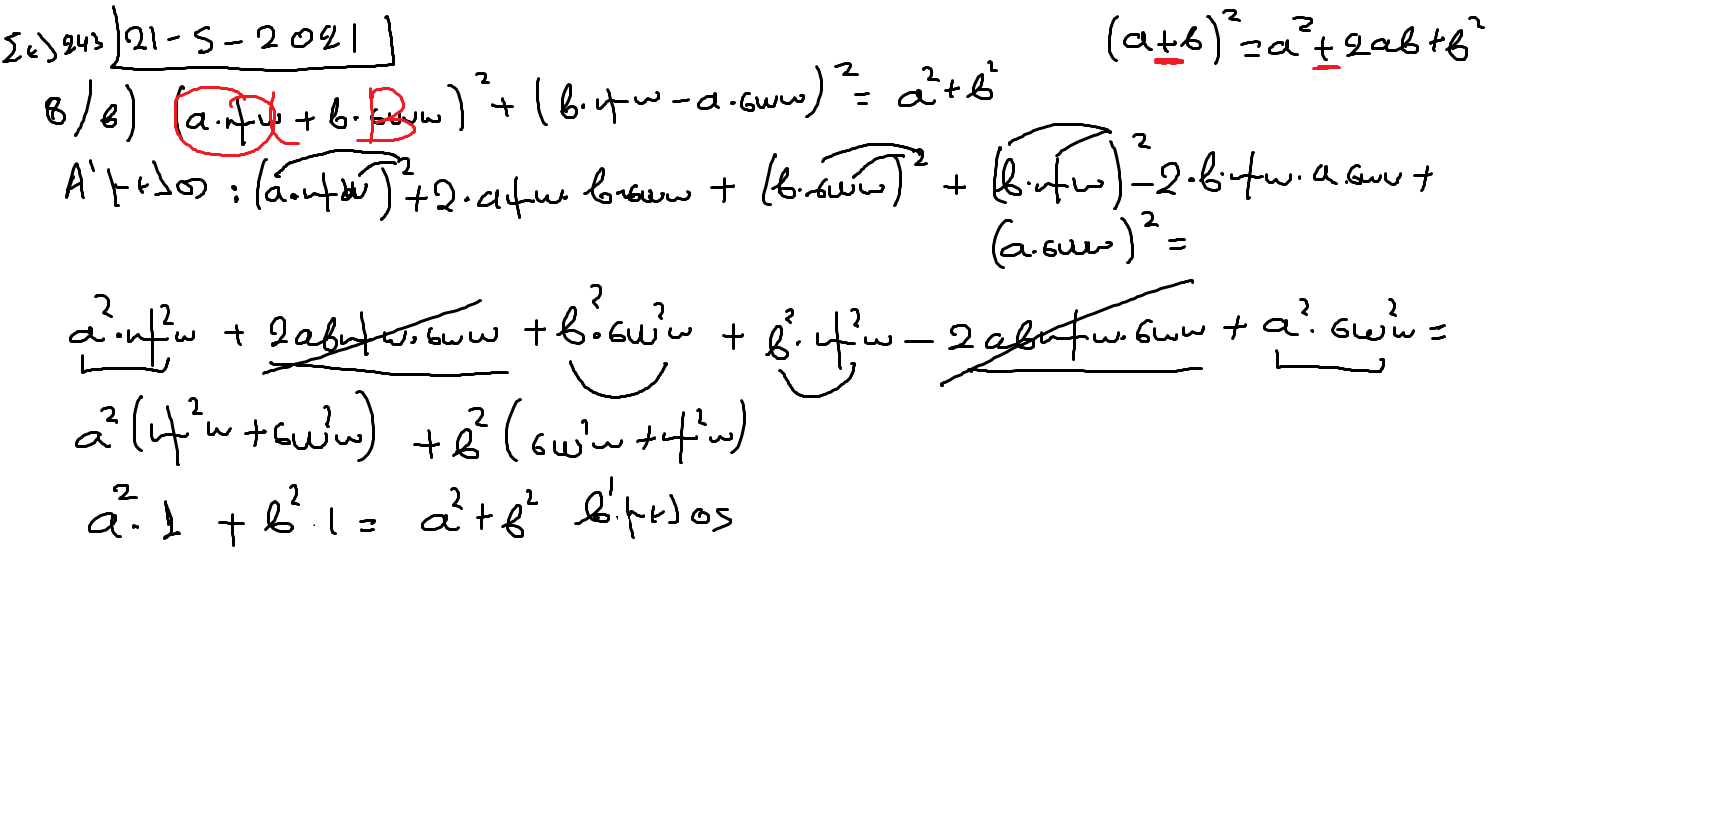 Σελ 243 21-5-2021
(a+β)² = a² + 2aβ + β²
8/β) (a·ημω + β·συνω)² + (β·ημω - a·συνω)² = a² + β²
Α' μελος : (a·ημω)² + 2·aημω·βσυνω + (β·συνω)² + (β·ημω)² - 2·β·ημω·a.συνω +
(a·συνω)² =
a²·ημ²ω + 2aβημω·συνω + β²·συν²ω + β²·ημ²ω - 2aβημω·συνω + a²·συν²ω =
a²(ημ²ω + συν²ω) + β²(συν²ω + ημ²ω)
a²·1 + β²·1 = a² + β² β' μελος